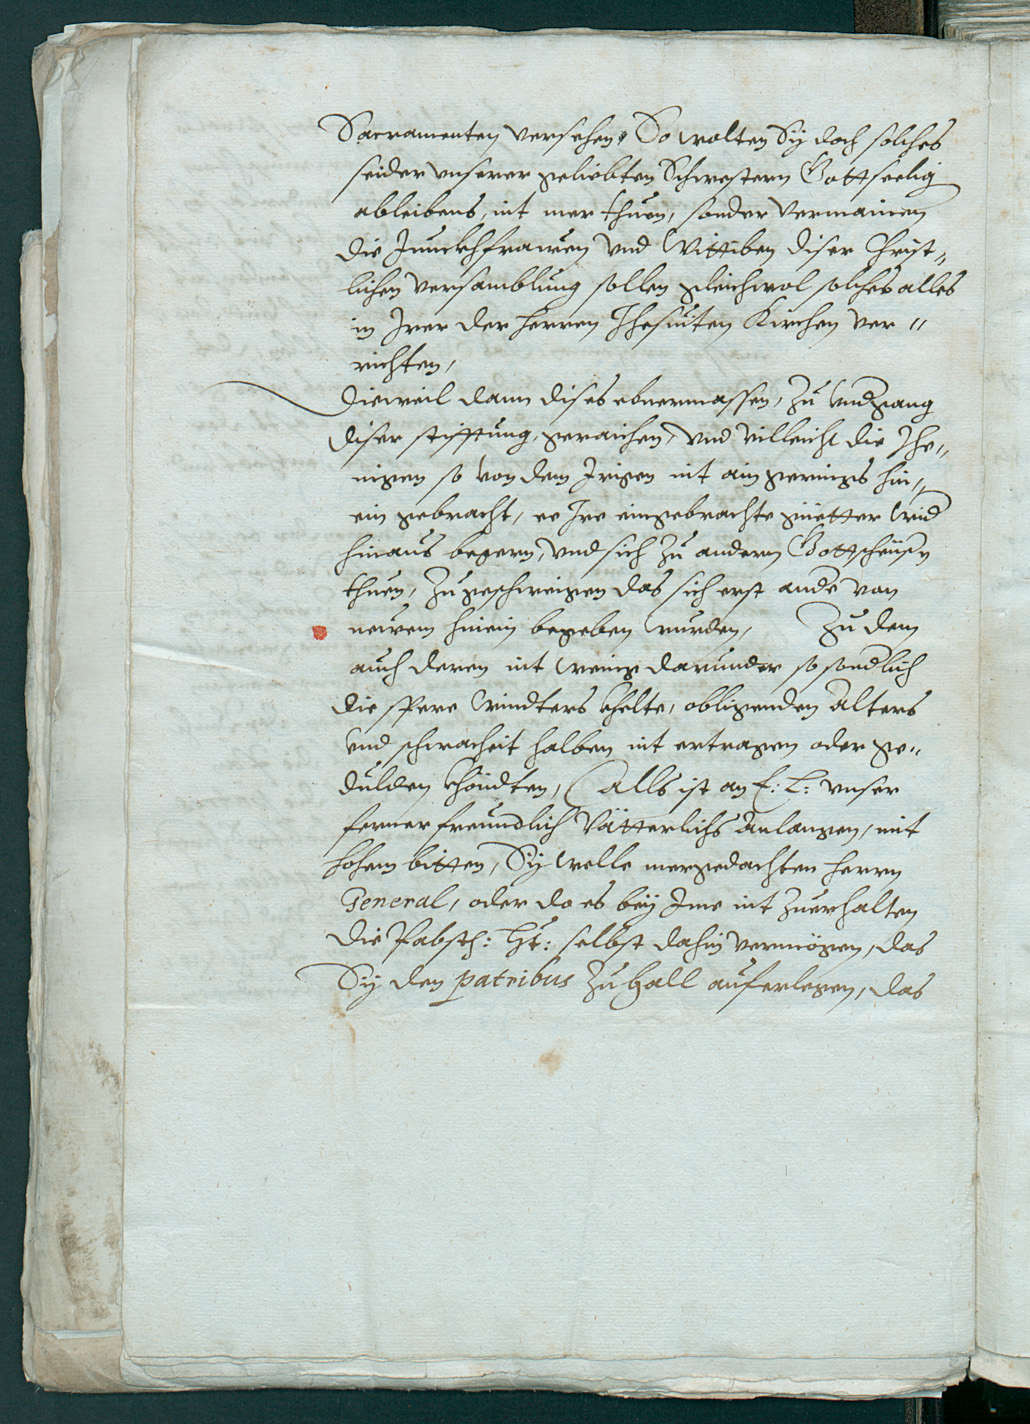 Sacramenten versehen, So wolten Sÿ doch solches
seider unserer geliebten Schwestern Gottseelig
ableibens, nit mer thuen, sonder vermainen
die Junckhfrawen und Wittiben diser Christ„
lichen versamblung sollen gleichwol solches alles
in Irer der herren Jhesuiten Kirchen ver„
richten,
Dieweil dann dises ebnermassen, zu undgang
diser stifftung, geraichen, und villeicht die Jhe„
nigen so von dem Irigen nit ain gerings hin„
ein gebracht, ee Ire eingebrachte güetter wid
hinaus begern, und sich zu andern Gottsheüsn
thuen, zugeschweigen das sich erst ande von
newem hinein begeben wurden, Zu dem
auch deren nit wenig darunder so sondlich
die spere windters khelte, obligenden alters
und schwacheit halben nit ertragen oder ge„
dulden khöndten, Alls ist an E: L: unser
ferner freundlich Vätterlichs anlangen, mit
hohem bitten, Sÿ welle mergedachten herrn
General, oder da es beÿ Ime nit zuerhalten
die Päbstl: Ht: selbst dahin vermögen, das
Sÿ den patribus zu Hall auferlegen, das